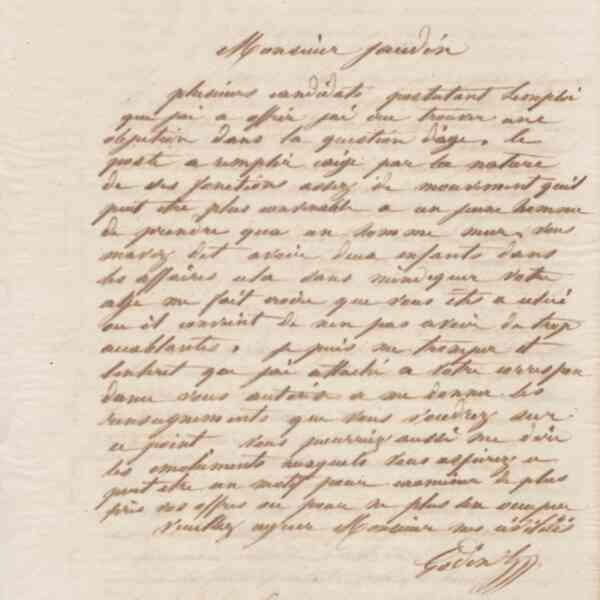 Monsieur Jaudin
plusieurs candidats postulant l'emploi
que j'ai a offrir j'ai cru trouver une
objection dans la question d'age. le
poste a remplir exige par la nature
de ses fonctions assez de mouvement qu'il
peut etre plus convenable a un jeune homme
de prendre qu'a un homme mur, vous
m'avez dit avoir deux enfants dans
les affaires cela sans m'indiquer votre
age me fait croire que vous êtes a celui
ou il convient de n'en pas avoir de trop
accablantes. je puis me tromper et
l'interet que j'ai attaché a votre correspon
dance vous autorise a me donner les
renseignements que vous voudrez sur
ce point vous pourriez aussi me dire
les emoluments auxquels vous aspirez ce
peut etre un motif pour examiner de plus
près vos offres ou pour ne plus s'en occuper
Veuillez agreer Monsieur mes civilités
Godin